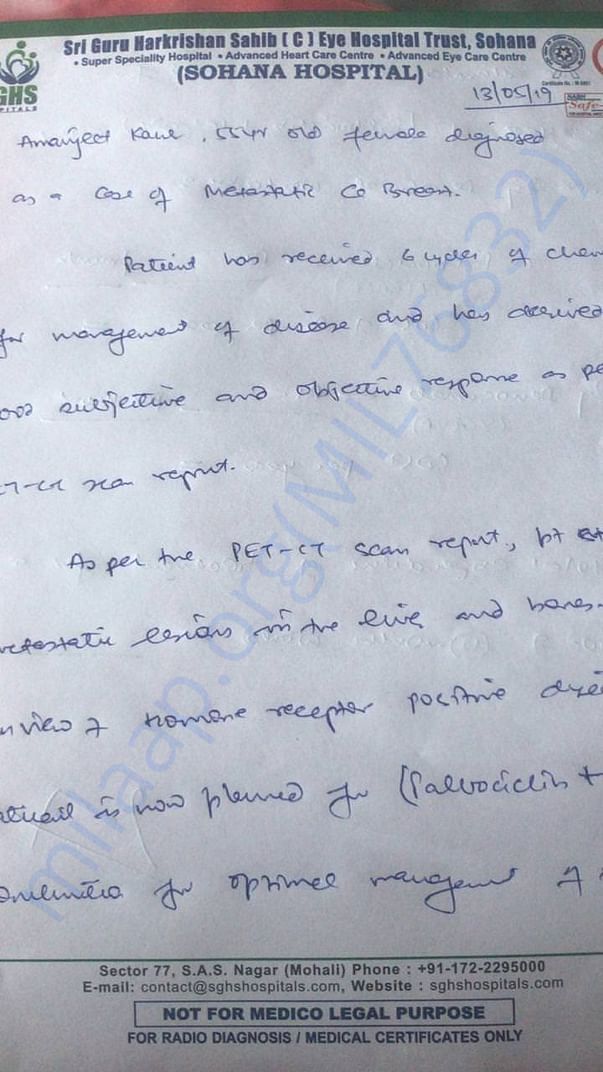 Sri Guru Harkrishan Sahib ( C ) Eye Hospital Trust, Sohana
• Super Speciality Hospital • Advanced Heart Care Centre • Advanced Eye Care Centre
(SOHANA HOSPITAL)
GHS
PITALS
NABH
Safe-
13/05/19
Amarjeet Kaur, 55 yr old female diagnosed
as a case of Metastatic Ca Breast.
Patient has received 6 cycles of chem
for management of disease and has derived
ood subjective and objective response as pe
ET-CT scan report.
As per the PET-CT scan report, pt
metastatic lesions in the liver and bones.
In view of hormone receptor positive
patient is now planned for (Palbociclib +
for optimal management of
milaap.org(MIL76832)
Sector 77, S.A.S. Nagar (Mohali) Phone : +91-172-2295000
E-mail: contact@sghshospitals.com, Website : sghshospitals.com
NOT FOR MEDICO LEGAL PURPOSE
FOR RADIO DIAGNOSIS / MEDICAL CERTIFICATES ONLY